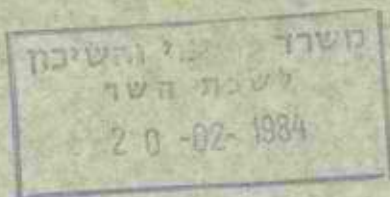 משרד והשיכון
לשכת השר
20 -02- 1984